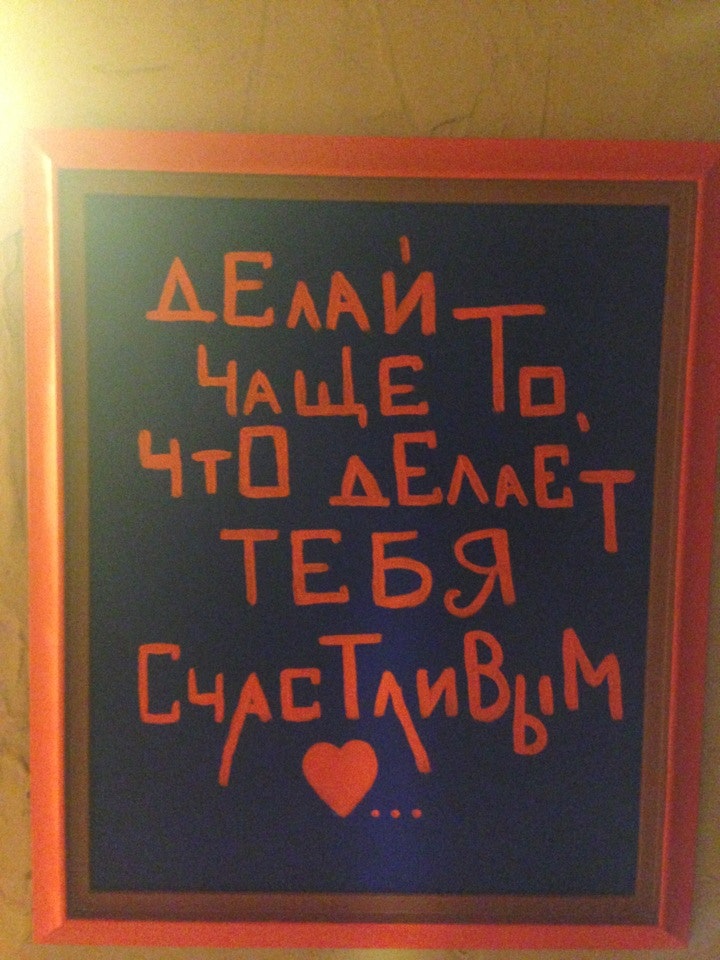 ДЕЛАЙ
ЧАЩЕ ТО,
ЧТО ДЕЛАЕТ
ТЕБЯ
СЧАСТЛИВЫМ
♥...